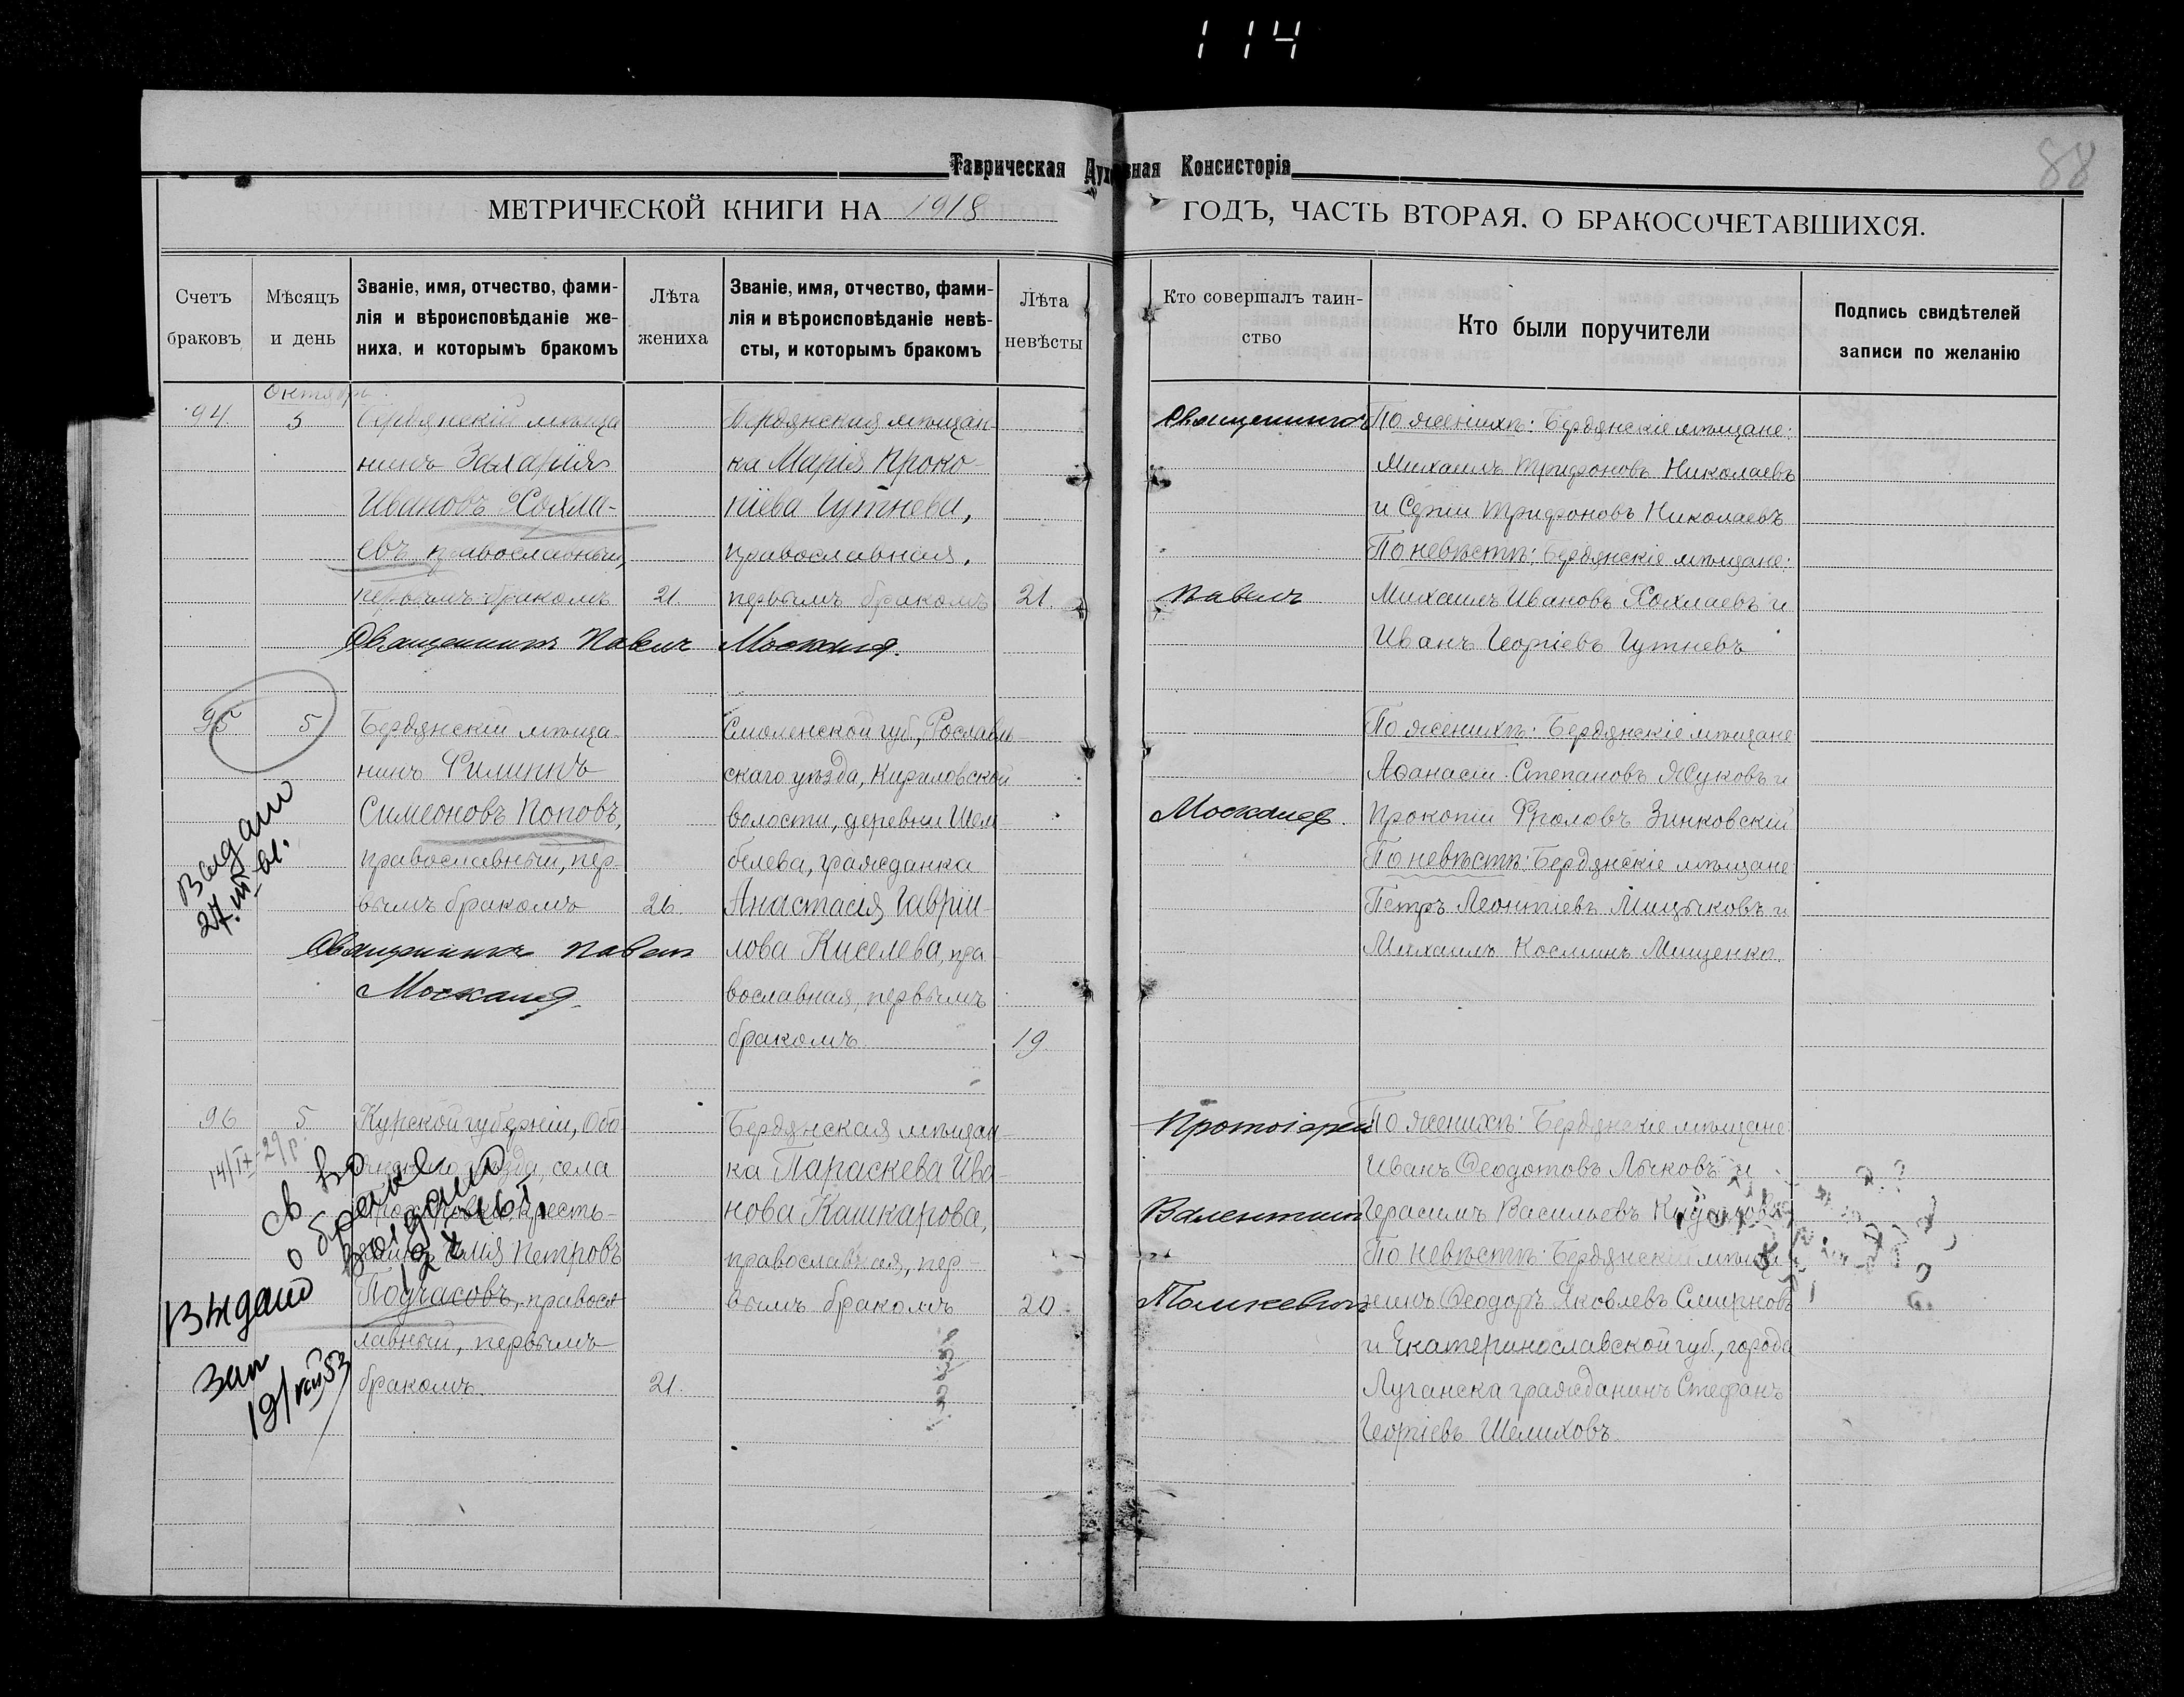 114
88
Таврическая Духовная Консисторія
МЕТРИЧЕСКОЙ КНИГИ НА 1918 ГОДЪ, ЧАСТЬ ВТОРАЯ, О БРАКОСОЧЕТАВШИХСЯ.
Счетъ браковъ
Мѣсяцъ и день
Званіе, имя, отчество, фами-
лія и вѣроисповѣданіе же-
ниха, и которымъ бракомъ
Лѣта жениха
Званіе, имя, отчество, фами-
лія и вѣроисповѣданіе невѣ-
сты, и которымъ бракомъ
Лѣта невѣсты
Кто совершалъ таин-
ство
Кто были поручители
Подпись свидѣтелей
записи по желанію
Октябрь
94.
5
Бердянскій мѣща
нинъ Захарія
Ивановъ Хохла-
евъ православный,
первымъ бракомъ
21.
Бердянская мѣщан-
ка Марія Проко-
піева Гутнева,
православная,
первымъ бракомъ
21
Священникъ Павелъ
Священникъ
Павелъ
По женихѣ: Бердянскіе мѣщане:
Михаилъ Трифоновъ Николаевъ
и Трифоновъ Николаевъ
По невѣстѣ: Бердянскіе мѣщане:
Михаилъ Ивановъ Хохлаевъ и
Иванъ Георгіевъ Гутневъ
95
5
Бердянскій мѣща-
нинъ Филиппъ
Симеоновъ Поповъ,
православный, пер-
вымъ бракомъ
26.
Священникъ Павелъ
Смоленской губ., Рославль-
скаго уѣзда, Кириловской
волости, деревни Шем-
белева, гражданка
Анастасія Гавріи-
лова Киселева, пра
вославная, первымъ
бракомъ
19.
По женихѣ: Бердянскіе мѣщане
Аѳанасій Степановъ Жуковъ и
Прокопій Фроловъ Зинковскій
По невѣстѣ: Бердянскіе мѣщане
Петръ Леонтіевъ и
Михаилъ Косминъ Мищенко.
Выдано
27.III-61.
96
5.
Курской губерніи, Обо
села
кресть-
Петровъ
Подчасовъ, правосл
лавный, первымъ
бракомъ.
21.
Бердянская мѣщан-
ка Параскева Ива-
нова Кашкарова,
православная, пер-
вымъ бракомъ
20
Протоіерей
Валентинъ
По женихѣ: Бердянскіе мѣщане:
Иванъ Ѳеодотовъ Лыковъ и
Герасимъ Васильевъ
По невѣстѣ: Бердянскій мѣща
нинъ Ѳеодоръ Яковлевъ Смирновъ
и Екатеринославской губ., города
Луганска гражданинъ Стефанъ
Георгіевъ Шелиховъ.
14/IX-29р.
св во
о браке
выдано
Выдано